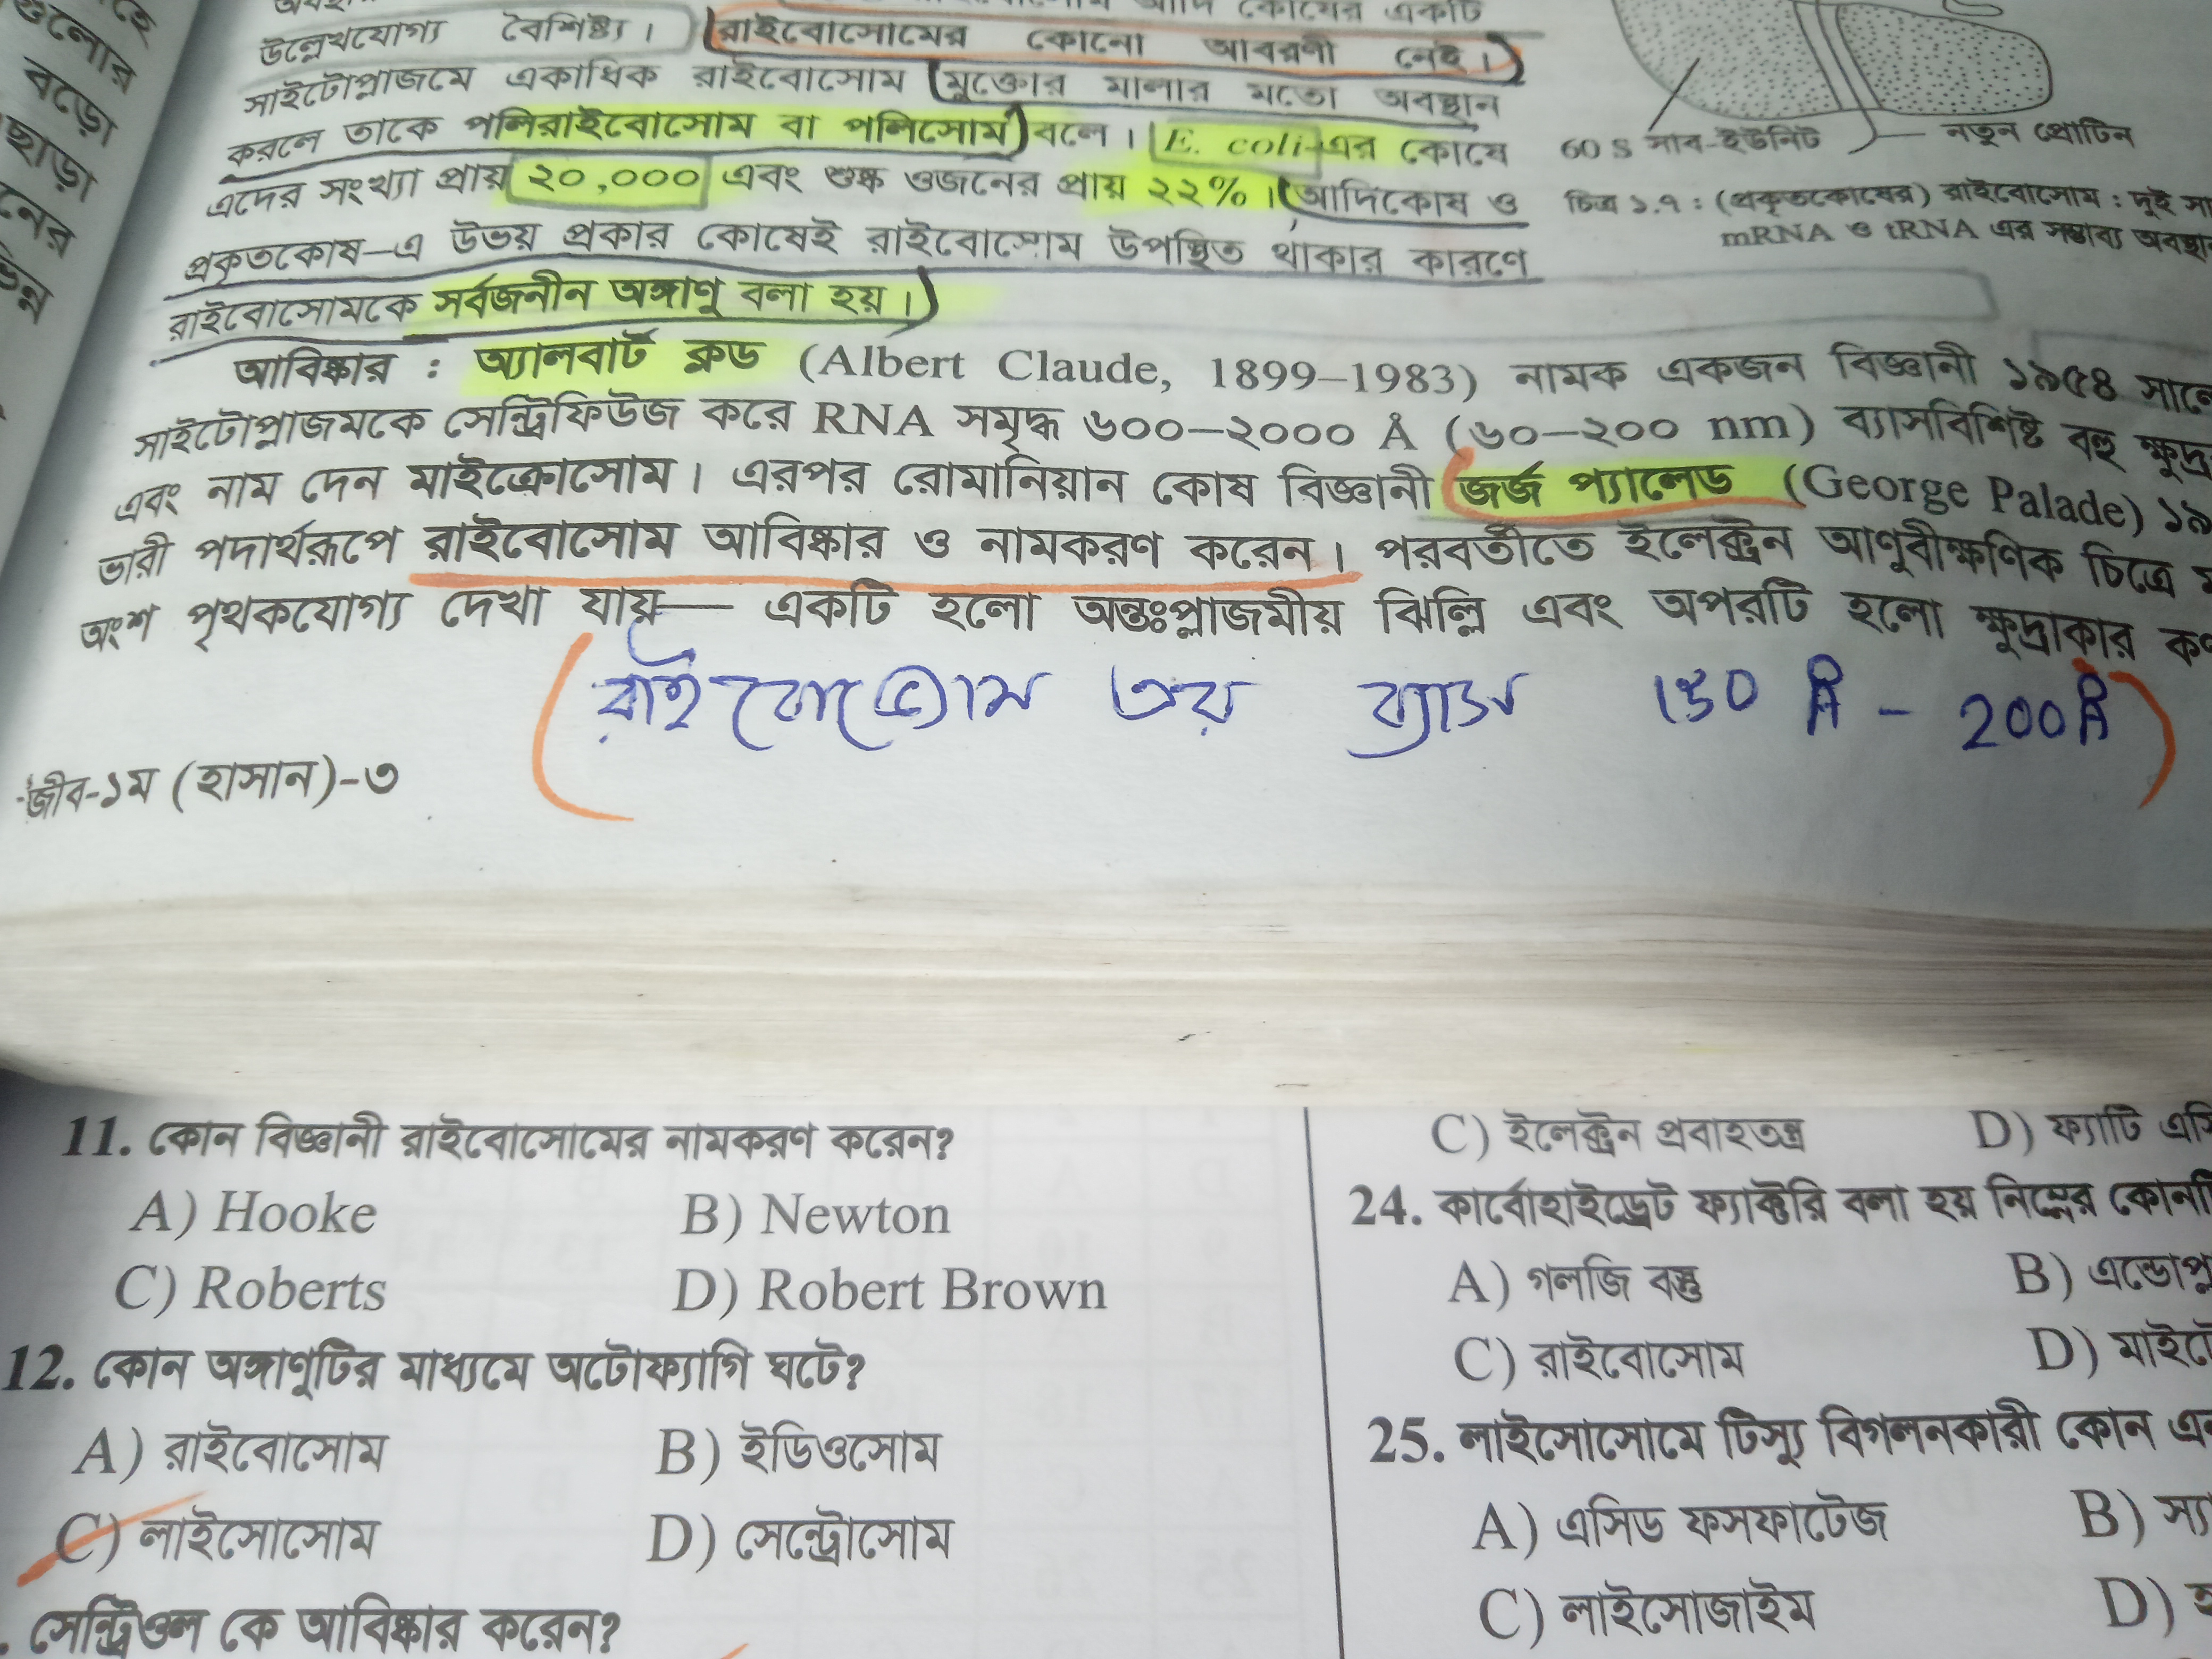 গুলোর
বড়ো
ছাড়া
নের
উল্লেখযোগ্য বৈশিষ্ট্য। রাইবোসোমের কোনো আবরণী নেই।
সাইটোপ্লাজমে একাধিক রাইবোসোম মুক্তোর মালার মতো অবস্থান
করলে তাকে পলিরাইবোসোম বা পলিসোম বলে। E. coli-এর কোষে
এদের সংখ্যা প্রায় ২০,০০০ এবং শুষ্ক ওজনের প্রায় ২২%। আদিকোষ ও
প্রকৃতকোষ—এ উভয় প্রকার কোষেই রাইবোসোম উপস্থিত থাকার কারণে
রাইবোসোমকে সর্বজনীন অঙ্গাণু বলা হয়।
60 S সাব-ইউনিট
নতুন প্রোটিন
চিত্র ১.৭ : (প্রকৃতকোষের) রাইবোসোম : দুই
mRNA ও tRNA এর সম্ভাব্য
আবিষ্কার : অ্যালবার্ট ক্লড (Albert Claude, 1899–1983) নামক একজন বিজ্ঞানী ১৯৫৪ সালে
সাইটোপ্লাজমকে সেন্ট্রিফিউজ করে RNA সমৃদ্ধ ৬০০—২০০০ Å (৬০—২০০ nm) ব্যাসবিশিষ্ট বহু ক্ষুদ্র
এবং নাম দেন মাইক্রোসোম। এরপর রোমানিয়ান কোষ বিজ্ঞানী জর্জ প্যালেড (George Palade)
ভারী পদার্থরূপে রাইবোসোম আবিষ্কার ও নামকরণ করেন। পরবর্তীতে ইলেক্ট্রন আণুবীক্ষণিক চিত্রে
অংশ পৃথকযোগ্য দেখা যায়— একটি হলো অন্তঃপ্লাজমীয় ঝিল্লি এবং অপরটি হলো ক্ষুদ্রাকার
ব্যাস 150 Å - 200Å
জীব-১ম (হাসান)-৩
11. কোন বিজ্ঞানী রাইবোসোমের নামকরণ করেন?
A) Hooke B) Newton
C) Roberts D) Robert Brown
12. কোন অঙ্গাণুটির মাধ্যমে অটোফ্যাগি ঘটে?
A) রাইবোসোম B) ইডিওসোম
C) লাইসোসোম D) সেন্ট্রোসোম
সেন্ট্রিওল কে আবিষ্কার করেন?
C) ইলেক্ট্রন প্রবাহতন্ত্র D) ফ্যাটি
24. কার্বোহাইড্রেট ফ্যাক্টরি বলা হয় নিম্নের
A) গলজি বস্তু B)
C) রাইবোসোম D)
25. লাইসোসোমে টিস্যু বিগলনকারী কোন
A) এসিড ফসফাটেজ B)
C) লাইসোজাইম D)